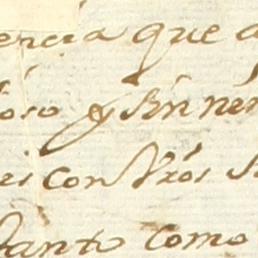 encia que a
oso y sin ne
es con Vros s
tanto como